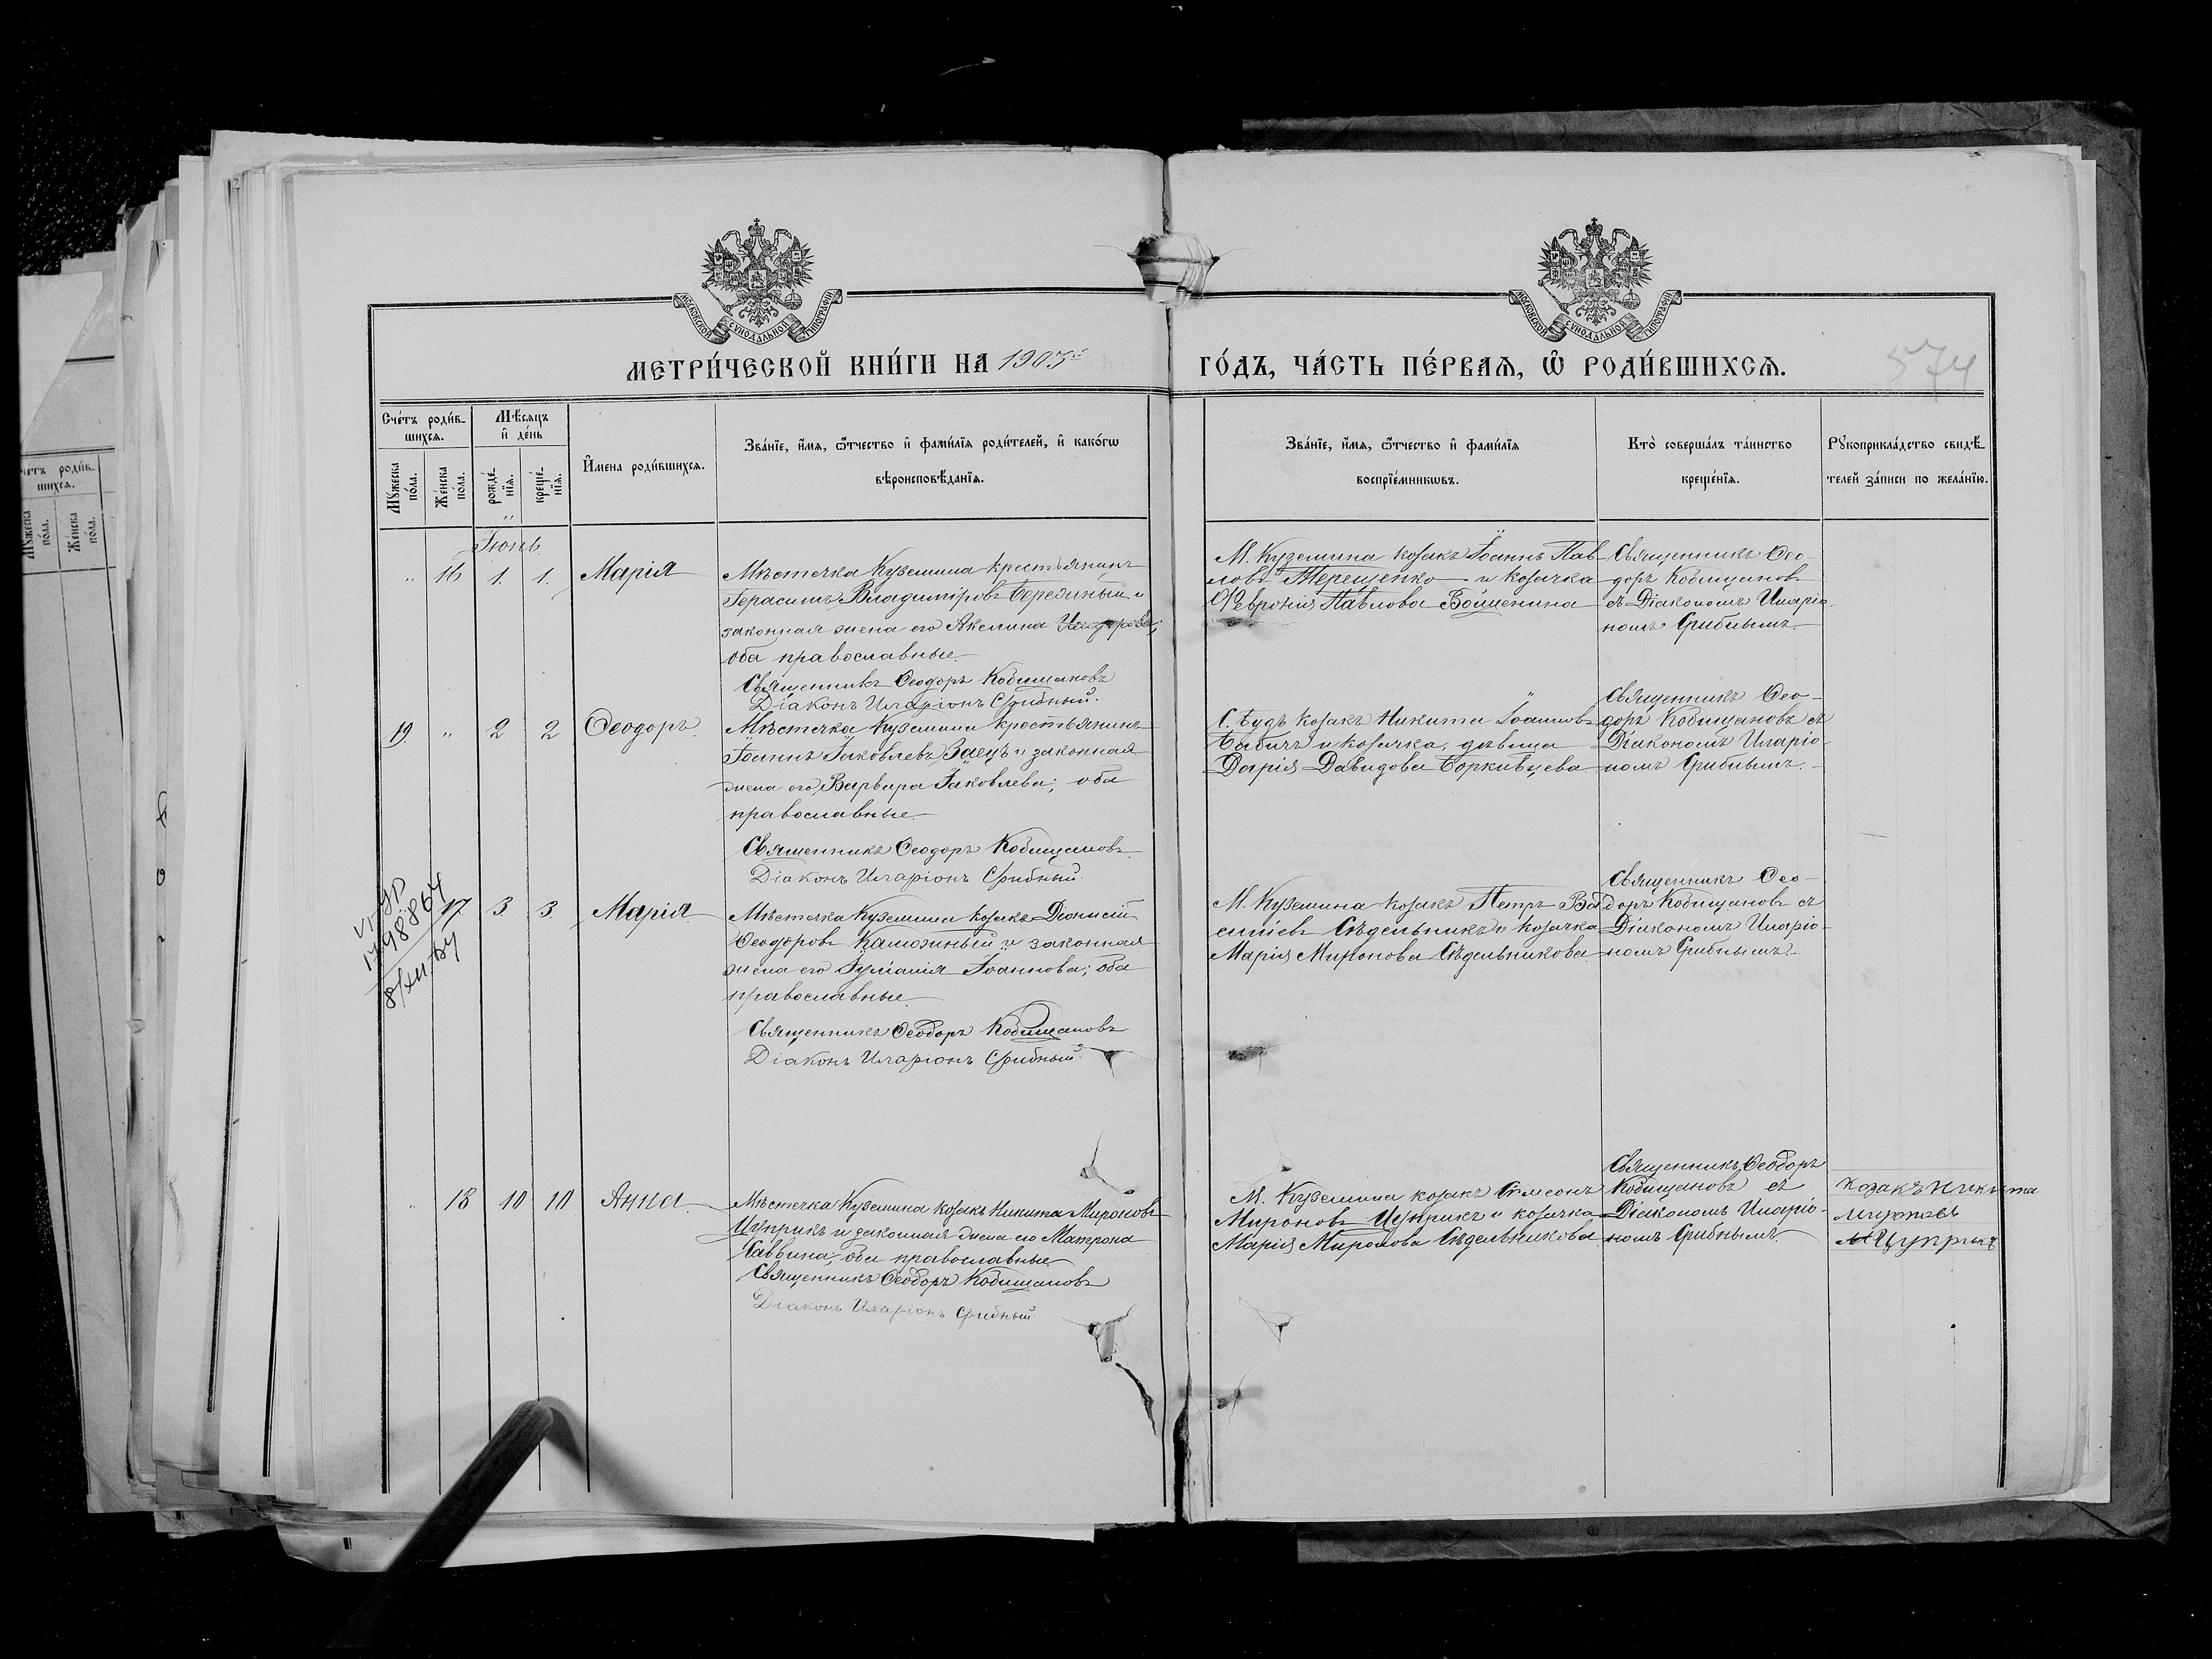 МОСКОВСКОЙ СУНОДАЛЬНОЙ ТИПОГРАФІИ
МОСКОВСКОЙ СУНОДАЛЬНОЙ ТИПОГРАФІИ
МЕТРИ́ЧЕСКОЙ КНИ́ГИ НА 1903й ГО́ДЪ, ЧА́СТЬ ПЕ́РВАѦ, Ѽ РОДИ́ВШИХСѦ.
574
Сче́тъ роди́в-
шихсѧ.
Мѣ́сѧцъ
и҆ де́нь
И҆мена роди́вшихсѧ.
Зва́нїе, и҆́мѧ, ѻ҆́тчество и҆ фами́лїѧ роди́телей, и҆ како́гѡ
вѣроисповѣ́данїѧ.
Зва́нїе, и҆́мѧ, ѻ҆́тчество и҆ фами́лїѧ
воспрїе́мникѡвъ.
Кто̀ соверша́лъ та́инство
креще́нїѧ.
Рꙋкоприкла́дство свидѣ́-
телей за́писи по жела́нїю.
Мꙋ́жеска
по́ла.
Же́нска
по́ла.
рожде́-
нїѧ.
креще́-
нїѧ.
Іюнь.
" 16 1. 1. Марія
Мѣстечка Куземина крестьянинъ
Герасимъ Владиміровъ Береdный и
законная жена его Акелина
оба православные.
Священникъ Ѳеодоръ Кобищановъ
Діаконъ Иларіонъ Срибный.
М. Куземина козакъ Іоаннъ Пав-
ловъ Терещенко и козачка
Феѵронія Павлова
Священникъ Ѳео-
доръ Кобищановъ
съ Діакономъ Иларіо-
номъ Срибнымъ.
19. " 2 2 Ѳеодоръ.
Мѣстечка Куземина крестьянинъ
Іоаннъ Іаковлевъ Заецъ и законная
жена его Варвара Іаковлева; оба
православные.
Священникъ Ѳеодоръ Кобищановъ
Діаконъ Иларіонъ Срибный.
С. Будъ козакъ Никита Іоанновъ
Бабичъ и козачка, дѣвица
Дарія Давидова Борковцева
Священникъ Ѳео-
доръ Кобищановъ съ
Діакономъ Иларіо-
номъ Срибнымъ.
VI-УР
1798864
8/XII-
17. 3. 3. Марія.
Мѣстечка Куземина козакъ Діонисій
Ѳеодоровъ Калюжный и законная
жена его Іуліанія Іоаннова; оба
православные.
Священникъ Ѳеодоръ Кобищановъ
Діаконъ Иларіонъ Срибный.
М. Куземина козакъ Петръ Ва-
силіевъ Сѣдельникъ и козачка
Марія Миронова Сѣдельникова
Священникъ Ѳео-
доръ Кобищановъ съ
Діакономъ Иларіо-
номъ Срибнымъ.
" 18 10 10 Анна.
Мѣстечка Куземина козакъ Никита Мироновъ
Цуприкъ и законная жена его Матрона
Саввина; оба православные
Священникъ Ѳеодоръ Кобищановъ
Діаконъ Иларіонъ Срибный.
М. Куземина козакъ Симеонъ
Мироновъ Цуприкъ и козачка
Марія Миронова Сѣдельникова
Священникъ Ѳеодоръ
Кобищановъ съ
Діакономъ Иларіо-
номъ Срибнымъ.
козакъ Никита
Мироновъ
Цуприкъ